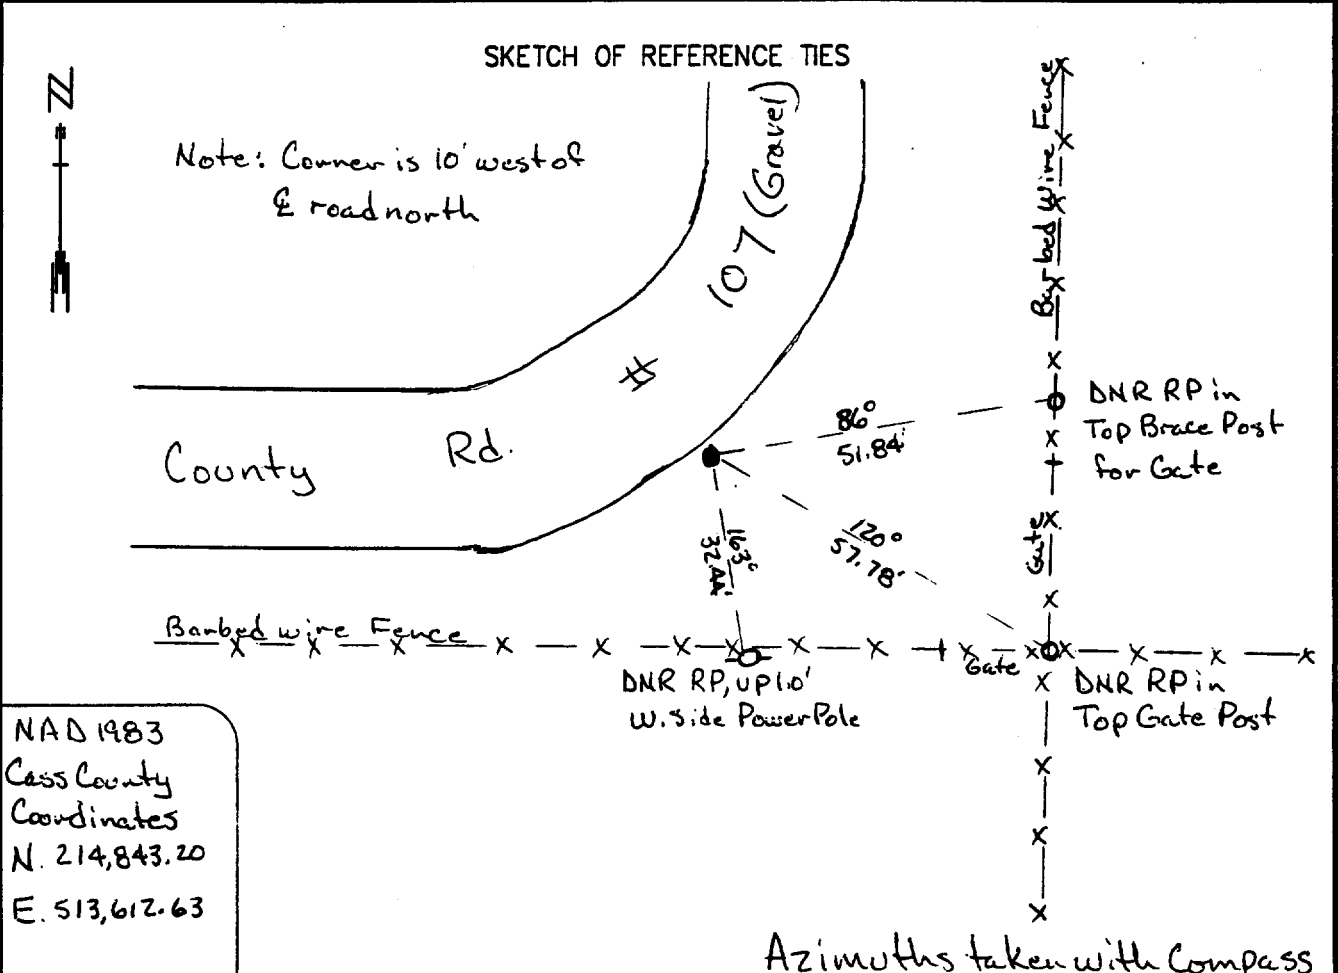 SKETCH OF REFERENCE TIES
N
Note: Corner is 10' west of
℄ road north
County Rd. # 107 (Gravel)
Barbed Wire Fence
86°
51.84'
DNR RP in
Top Brace Post
for Gate
120°
57.78'
163°
32.44'
Gate
Barbed wire Fence
Gate
DNR RP, UP 1.0'
W. Side Power Pole
DNR RP in
Top Gate Post
NAD 1983
Cass County
Coordinates
N. 214,843.20
E. 513,612.63
Azimuths taken with Compass